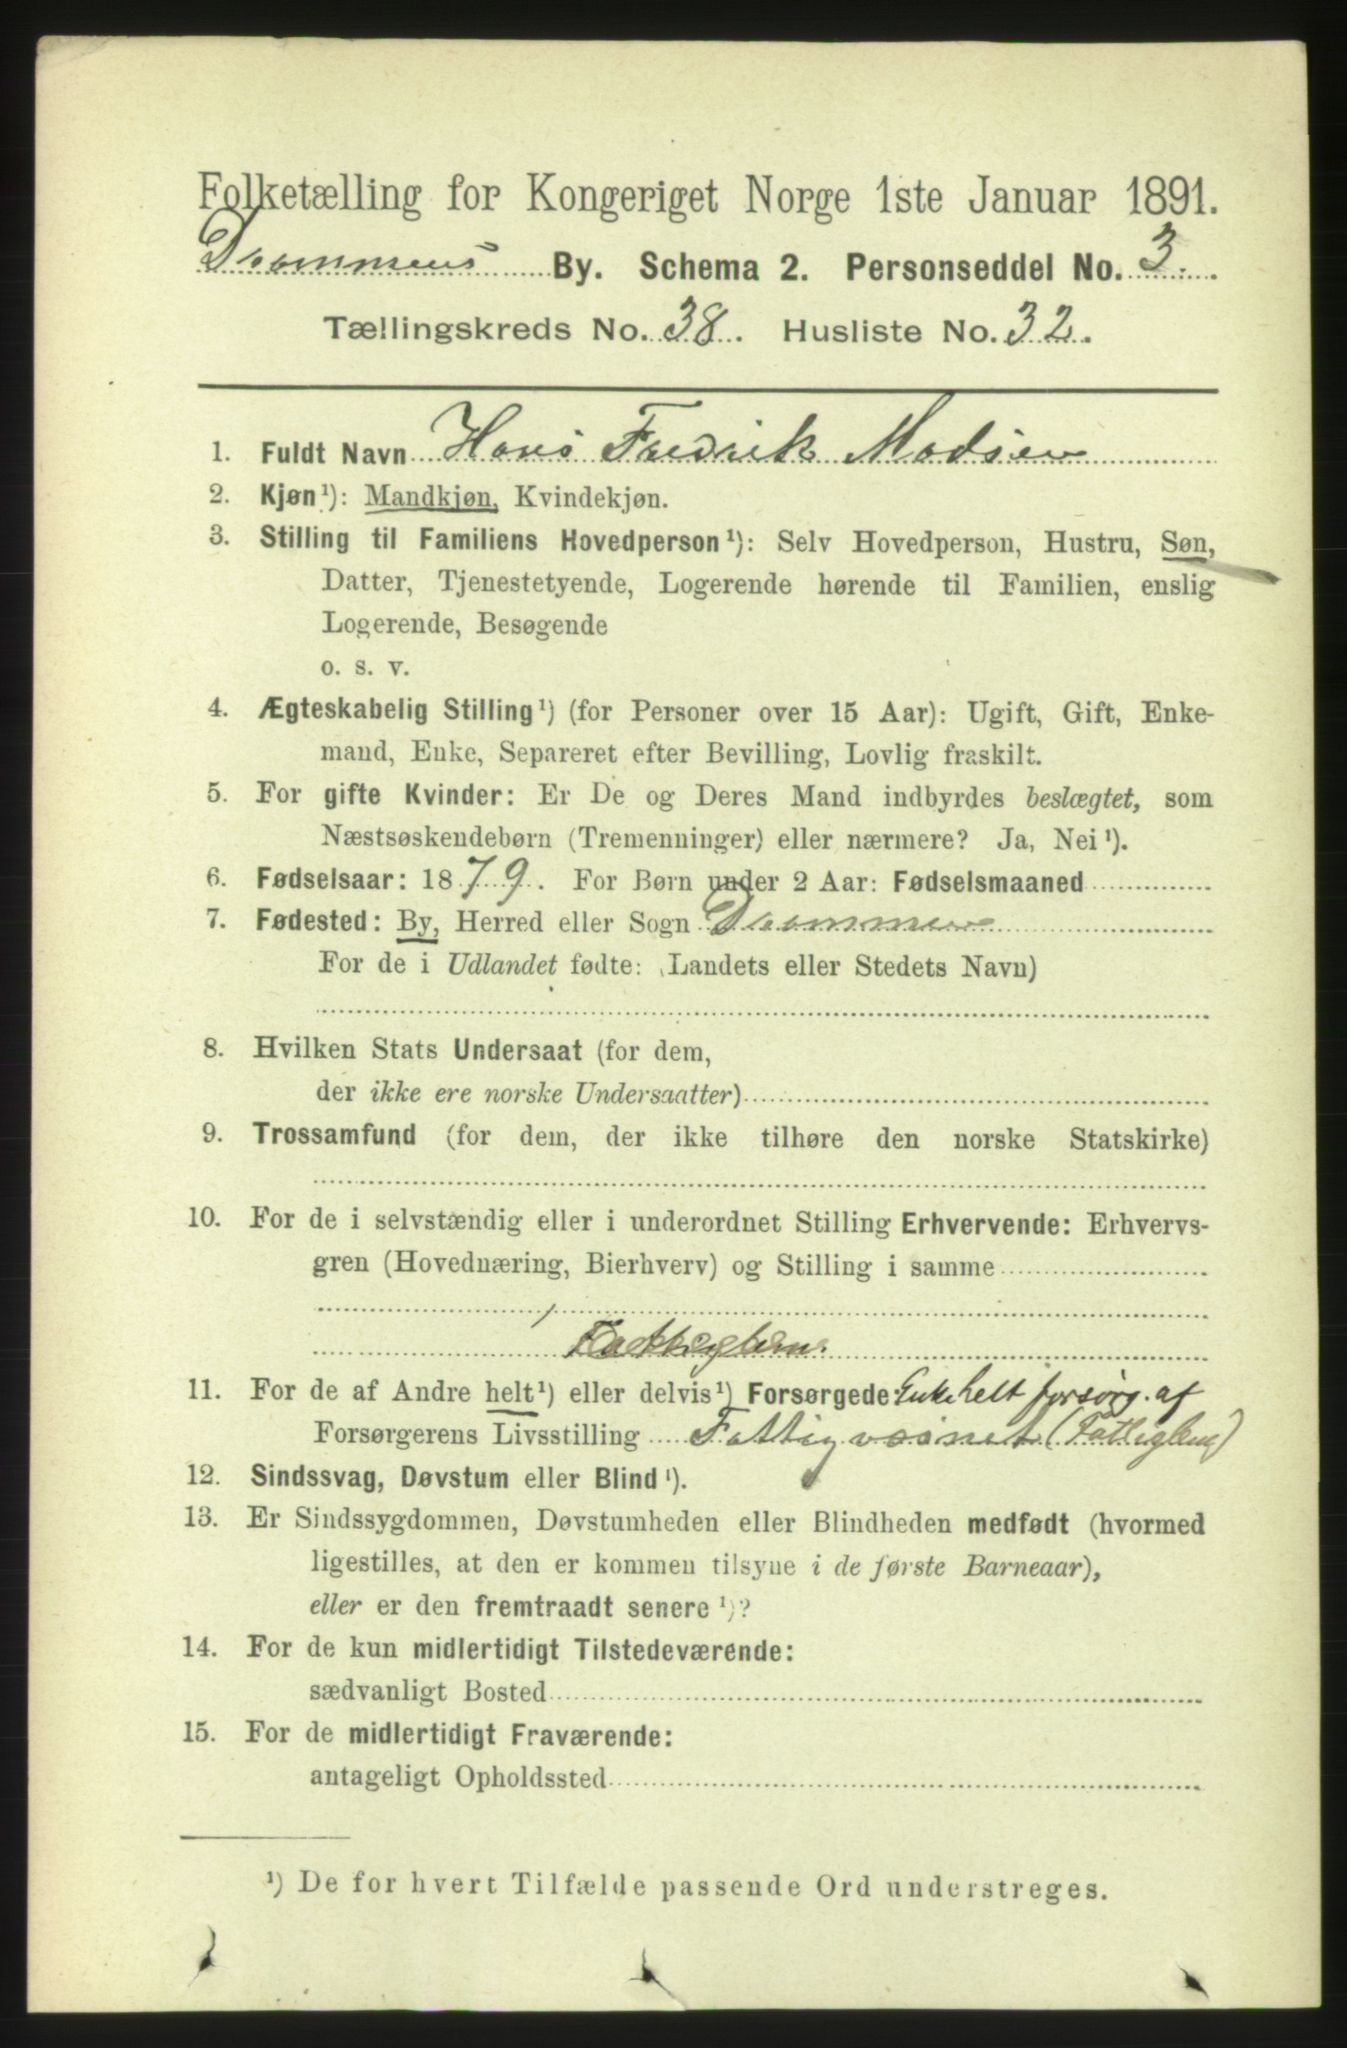 Folketælling for Kongeriget Norge 1ste Januar 1891.
Drammens By. Schema 2. Personseddel No. 3.
Tællingskreds No. 38. Husliste No. 32.
1. Fuldt Navn Hans Fredrik Madsen
2. Kjøn¹): Mandkjøn, Kvindekjøn.
3. Stilling til Familiens Hovedperson¹): Selv Hovedperson, Hustru, Søn,
Datter, Tjenestetyende, Logerende hørende til Familien, enslig
Logerende, Besøgende
o. s. v.
4. Ægteskabelig Stilling¹) (for Personer over 15 Aar): Ugift, Gift, Enke-
mand, Enke, Separeret efter Bevilling, Lovlig fraskilt.
5. For gifte Kvinder: Er De og Deres Mand indbyrdes beslægtet, som
Næstsøskendebørn (Tremenninger) eller nærmere? Ja, Nei¹).
6. Fødselsaar: 1879. For Børn under 2 Aar: Fødselsmaaned
7. Fødested: By, Herred eller Sogn Drammen
For de i Udlandet fødte: (Landets eller Stedets Navn)
8. Hvilken Stats Undersaat (for dem,
der ikke ere norske Undersaatter)
9. Trossamfund (for dem, der ikke tilhøre den norske Statskirke)
10. For de i selvstændig eller i underordnet Stilling Erhvervende: Erhvervs-
gren (Hovednæring, Bierhverv) og Stilling i samme
Fattiglem.
11. For de af Andre helt¹) eller delvis¹) Forsørgede helt forsørg. af
Forsørgerens Livsstilling Fattigvæsnet (Fattiglem)
12. Sindssvag, Døvstum eller Blind¹).
13. Er Sindssygdommen, Døvstumheden eller Blindheden medfødt (hvormed
ligestilles, at den er kommen tilsyne i de første Barneaar),
eller er den fremtraadt senere¹)?
14. For de kun midlertidigt Tilstedeværende:
sædvanligt Bosted
15. For de midlertidigt Fraværende:
antageligt Opholdssted
¹) De for hvert Tilfælde passende Ord understreges.